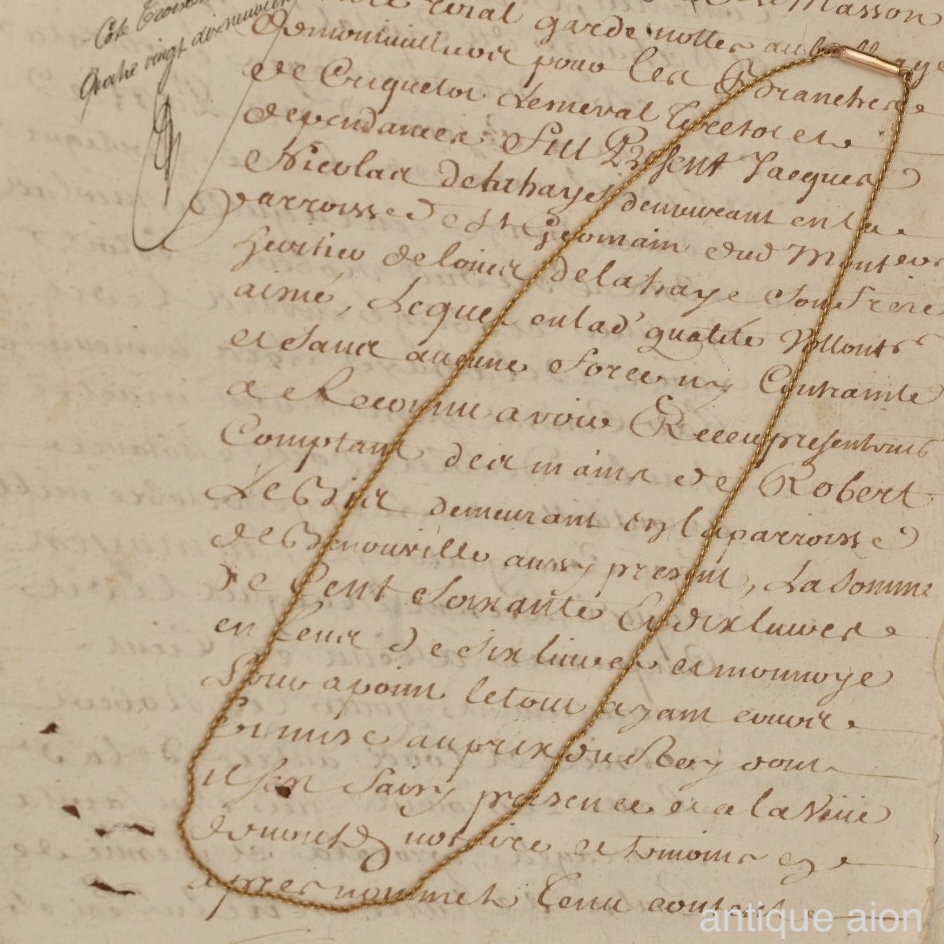 Cote Troisieme
Quatre vingt dix neuvieme
Masson
royal garde nottes au
demontivilliers pour les Branches
de Criquetot Lemeval Turetot et
dependances, Fut Present Jacques
Nicolas delahaye demeurant en la
Parroisse de St Germain dud Montivi
heritier de louis delahaye Son Frere
aisné, Lequel en lad' qualité Vollontre
et Sans aucune Force ny Contrainte
a Reconnu avoir Receu presentemt
Comptant des mains de Robert
Le demeurant en la parroisse
de Benouville aussy present, La Somme
de Cent Soixante Et dix livres
en Ecus de six livres et monnoye
Pour apoint le tout ayant cours
Et mise au prix du Roy dont
il sen Saisy presence et a la Veüe
de mondt notaire et temoins cy
apres nommés Tenu contant
antique aion